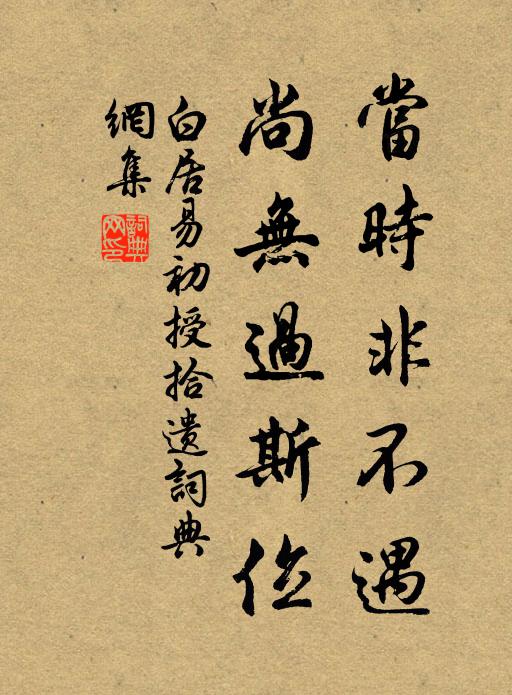 當時非不遇
尚無過斯位
白居易初授拾遺詞典
網集
詞典
网印